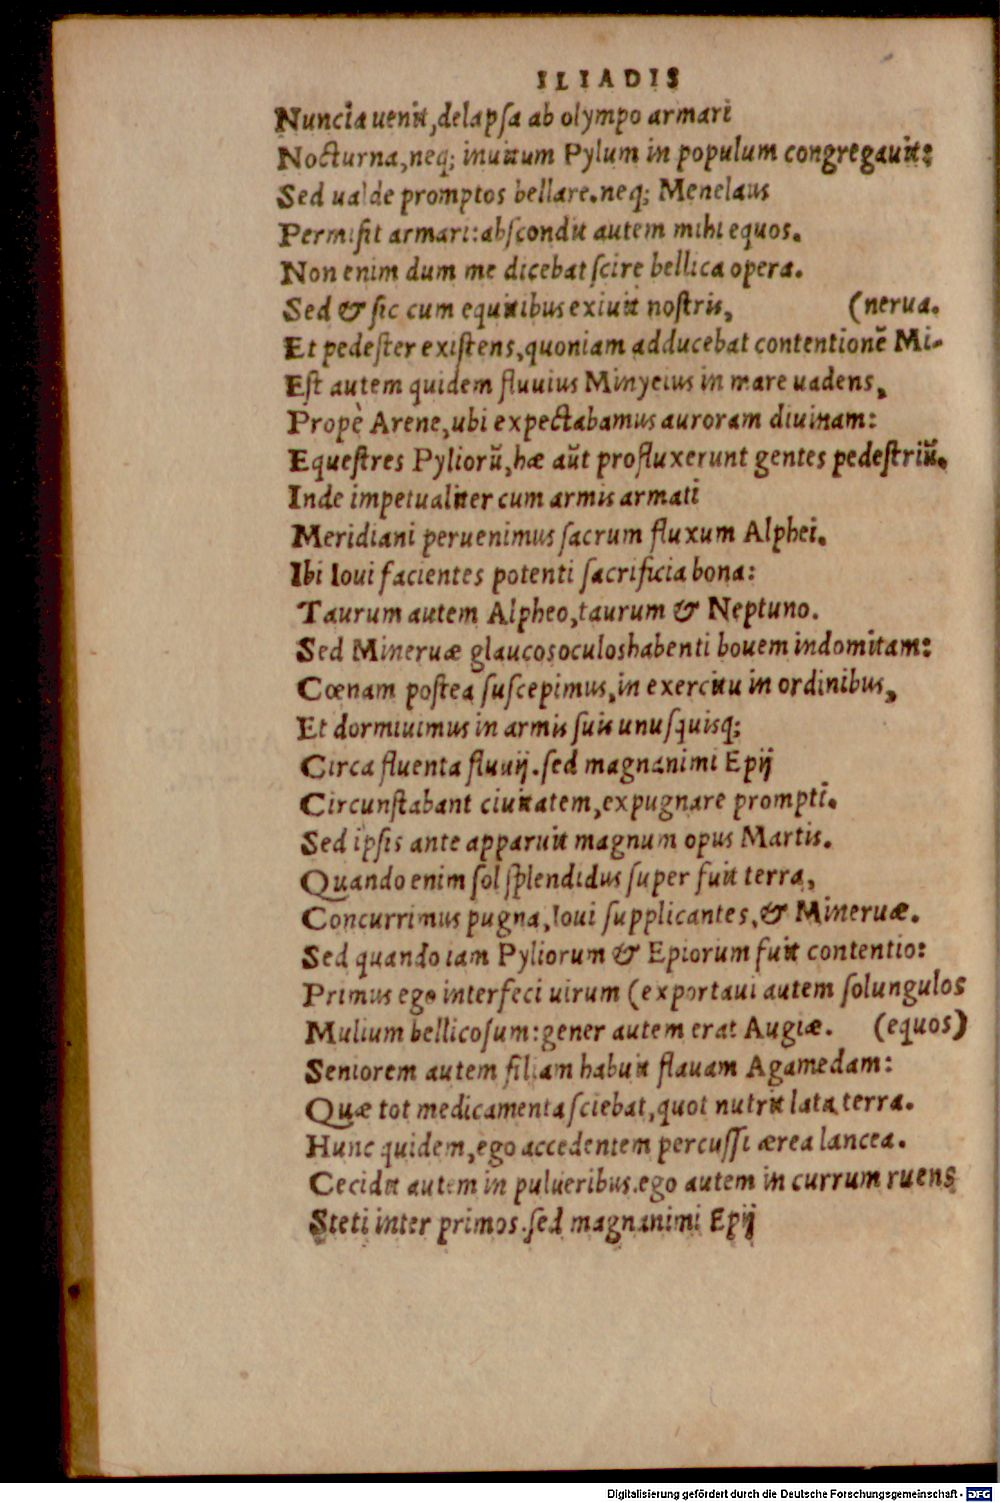 ILIADIS
Nuncia uenit, delapsa ab olympo armari
Nocturna, neq; inuitum Pylum in populum congregauit:
Sed ualde promptos bellare. neq; Menelaus
Permisit armari: abscondit autem mihi equos.
Non enim dum me dicebat scire bellica opera.
Sed & sic cum equitibus exiuit nostris, (nerua.
Et pedester existens, quoniam adducebat contentionē Mi-
Est autem quidem fluuius Minyeius in mare uadens,
Propè Arene, ubi expectabamus auroram diuinam:
Equestres Pyliorū, hæ aūt profluxerunt gentes pedestriū.
Inde impetualiter cum armis armati
Meridiani peruenimus sacrum fluxum Alphei.
Ibi Ioui facientes potenti sacrificia bona:
Taurum autem Alpheo, taurum & Neptuno.
Sed Mineruæ glaucosoculoshabenti bouem indomitam:
Cœnam postea suscepimus, in exercitu in ordinibus,
Et dormiuimus in armis suis unusquisq;
Circa fluenta fluuij. sed magnanimi Epij
Circunstabant ciuitatem, expugnare prompti.
Sed ipsis ante apparuit magnum opus Martis.
Quando enim sol splendidus super fuit terra,
Concurrimus pugna, Ioui supplicantes, & Mineruæ.
Sed quando iam Pyliorum & Epiorum fuit contentio:
Primus ego interfeci uirum (exportaui autem solungulos
Mulium bellicosum: gener autem erat Augiæ. (equos)
Seniorem autem filiam habuit flauam Agamedam:
Quæ tot medicamenta sciebat, quot nutrit lata terra.
Hunc quidem, ego accedentem percussi ærea lancea.
Cecidit autem in pulueribus. ego autem in currum ruens
Steti inter primos. sed magnanimi Epij
Digitalisierung gefördert durch die Deutsche Forschungsgemeinschaft - DFG